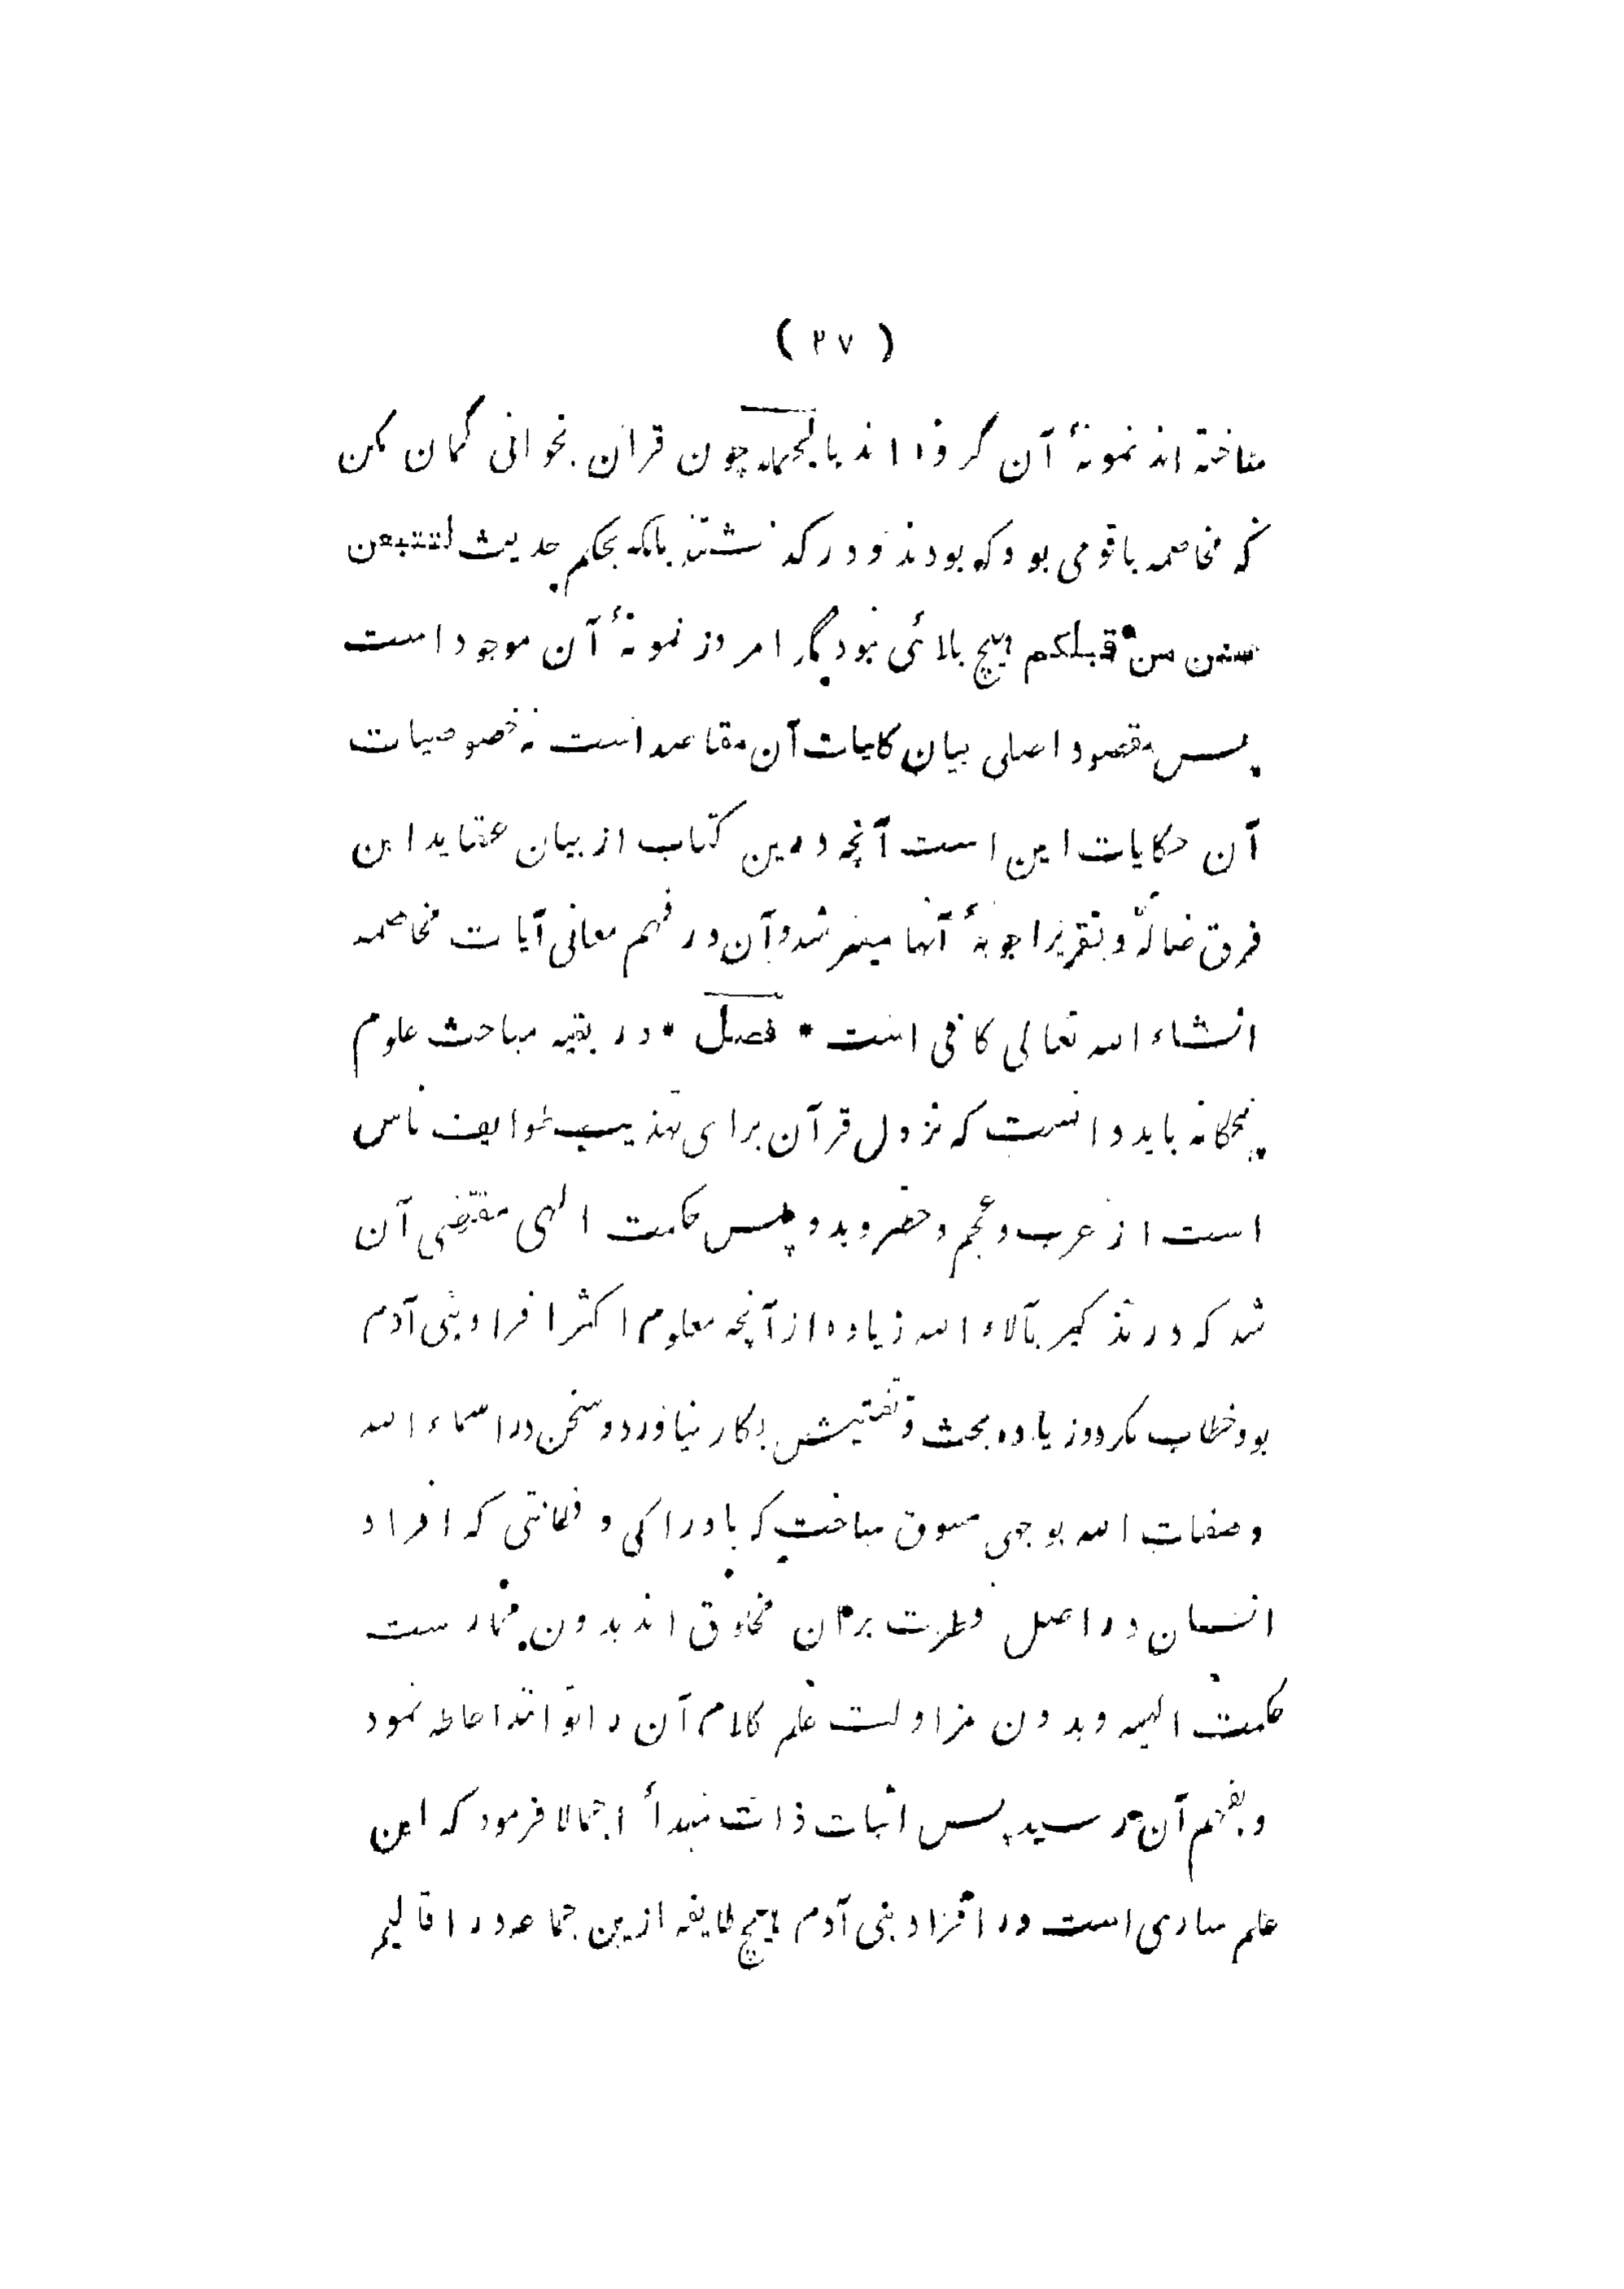 ( ۲۷ )
ساخته اند نمونۀ آن گروه اند بالجمله چون قرآن بخوانی گمان مکن
که مخاصمه با قومی بود که بودند و درگذشتند بلکه بحکم حدیث لتتبعن
سنن من قبلکم هیچ بلائی نبود مگر امروز نمونۀ آن موجود است
پس مقصود اصلی بیان کلیات آن مقاصد است نه خصوصیات
آن حکایات این است آنچه درین کتاب از بیان عقاید این
فرق ضالّه و تقریر اجوبۀ آنها میسر شد و آن در فهم معانی آیات مخاصمه
انشاء الله تعالی کافی است * فصل * در بقیه مباحث علوم
پنجگانه باید دانست که نزول قرآن برای تهذیب طوایف ناس
است از عرب و عجم و حضر و بدو پس حکمت الهی مقتضی آن
شد که در تذکیر بآلاء الله زیاده از آنچه معلوم اکثر افراد بنی آدم
بود خطاب نکرد و زیاده بحث و تفتیش بکار نیاورد و سخن در اسماء الله
و صفات الله بوجهی مسوق ساخت که بادراکی و فطانتی که افراد
انسان در اصل فطرت بر آن مخلوق اند بدون ممارست
حکمت الهیه و بدون مزاولت علم کلام آن را توانند احاطه نمود
و بفهم آن رسید پس اثبات ذات مبدأ اجمالا فرمود که این
علم ساری است در افراد بنی آدم هیچ طایفه ازین جماعه در اقالیم